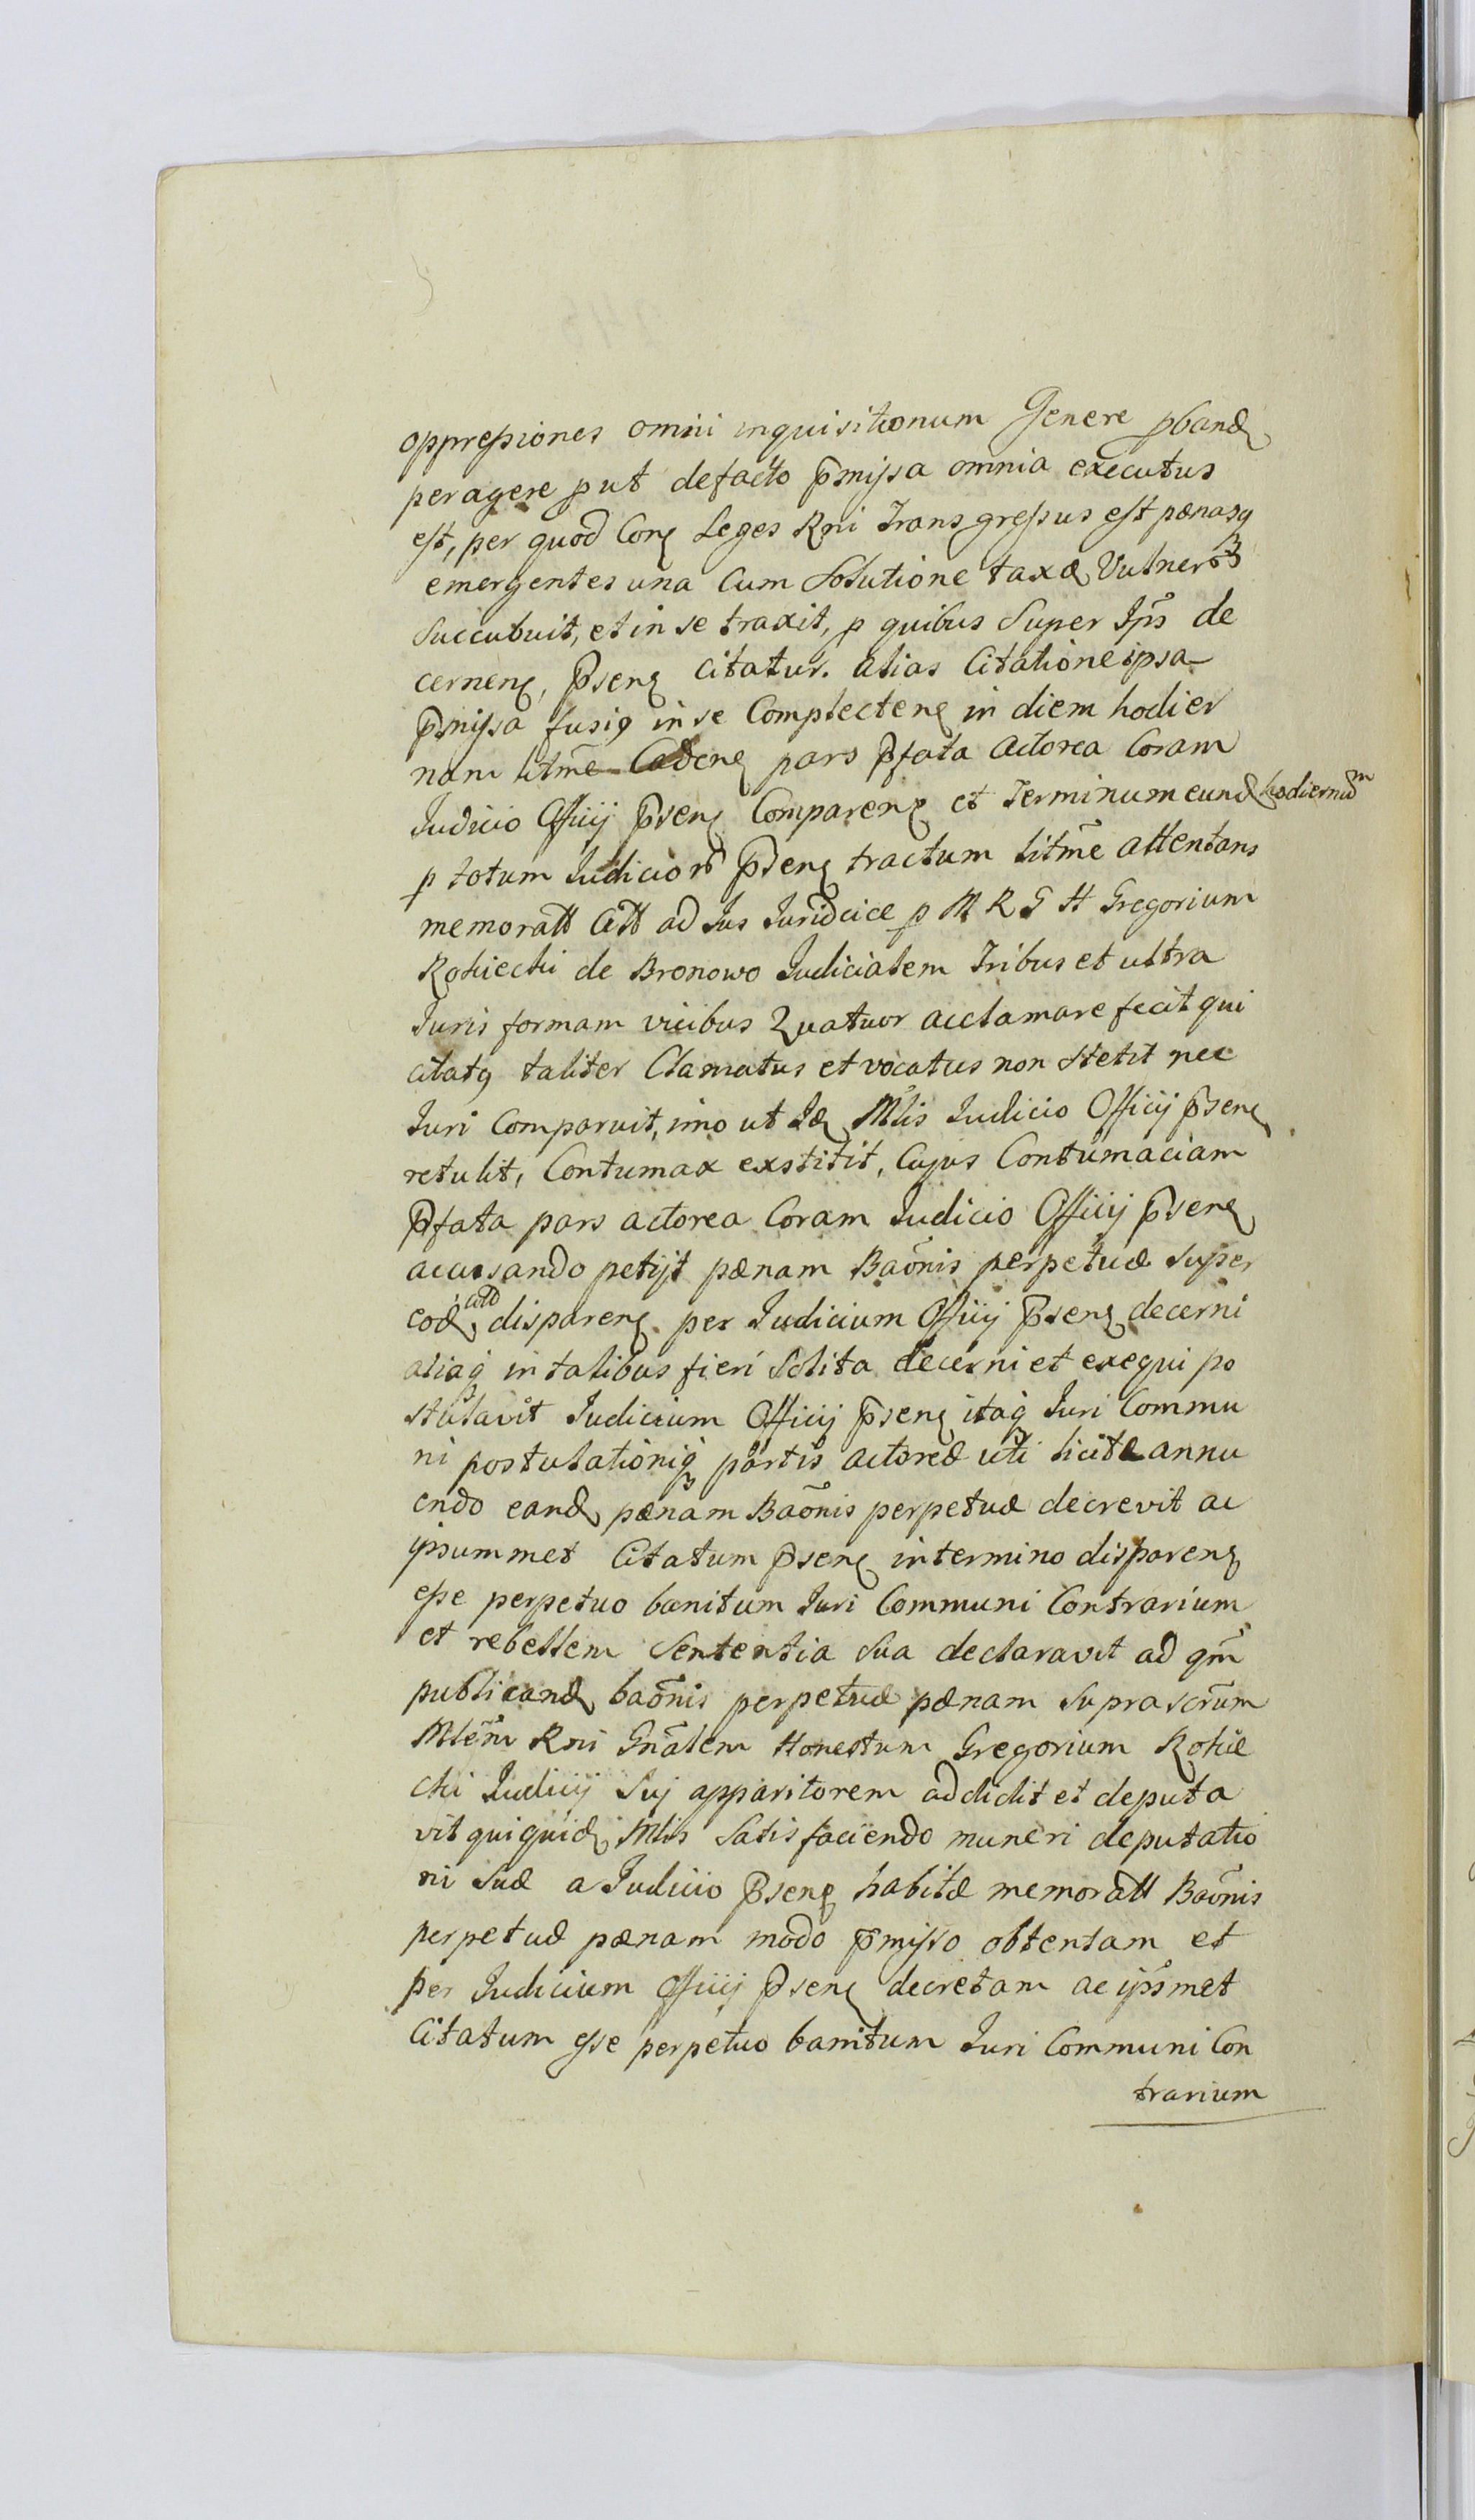 oppressiones omni inquisitionum Genere pband
peragere put defacto pmissa omnia executus
est, per quod Conq Leges Rni Transgressus est pænasq
emergentes una Cum Solutione taxæ Vulner
succubuit, et in se traxit, p quibus Super Ips de
cernenq, Psenq citatur. alias Citatione ipsa
Pmissa fusiq in se Complectenq in diem hodier
nam litme Cadenq pars Pfata Actorea Coram
Judicio Officij Psenq Comparenq et Terminum eund hodiernum
p totum Judicior Psenq tractum litme attentans
memoratt Citt ad Jus Juridcice p M R G H Gregorium
Rokiecki de Bronowo Judicialem Tribus et ultra
Juris formam vicibus Quatuor acclamare fecit qui
citatq taliter Clamatus et vocatus non stetit nec
Juri Comparuit, imo ut Id Mlis Judicio Officij Psenq
retulit, Contumax exstitit, Cujus Contumaciam
Pfata pars actorea Coram Judicio Officij Psenq
accusando petijt pænam Baonis perpetuæ super
eod citto disparenq per Judicium Officij Psenq decerni
aliaq in talibus fieri Solita decerni et exequi po
stulavit Judicium Officij Psenq itaq Juri Commu
ni postulationiq partis actoreæ uti licitæ annu
endo eand pænam Baonis perpetuæ decrevit ac
ipsummet Citatum Psenq in termino disparenq
esse perpetuo banitum Juri Communi Contrarium
et rebellem Sententia Sua declaravit ad qm
publicand baonis perpetuæ pænam suprascrum
Mlem Rni Gnalem Honestum Gregorium Rokie
cki Judicij Suj apparitorem addidit et deputa
vit qui quid Mlis Satisfaciendo muneri deputatio
ni Suæ a Judicio Psenq habitæ memoratt Baonis
perpetuæ pænam modo pmisso obtentam et
per Judicium Officij Psenq decretam ac ipsmet
Citatum esse perpetuo banitum Juri Communi Con
trarium